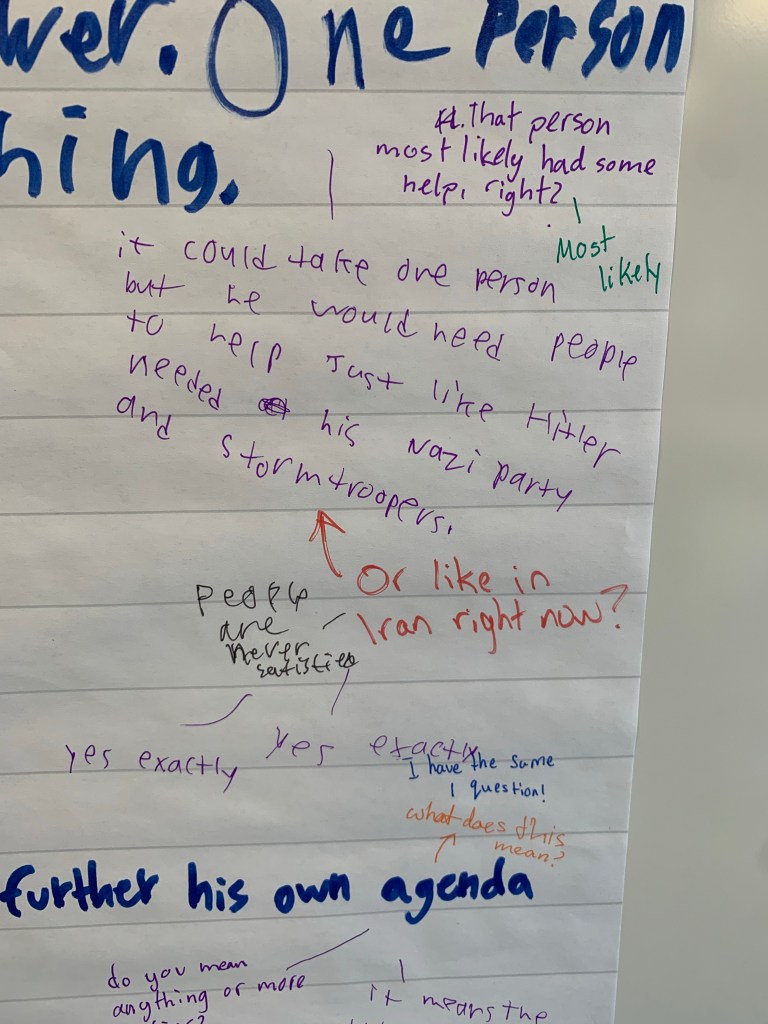 wer. One Person
hing.
That person
most likely had some
help, right?
Most
likely
it could take one person
but he would need people
to help Just like Hitler
needed his Nazi party
and stormtroopers.
Or like in
Iran right now?
people
are
never
satisfied
yes exactly
yes exactly
I have the same
question!
what does this
mean?
further his own agenda
do you mean
anything or more
it means the